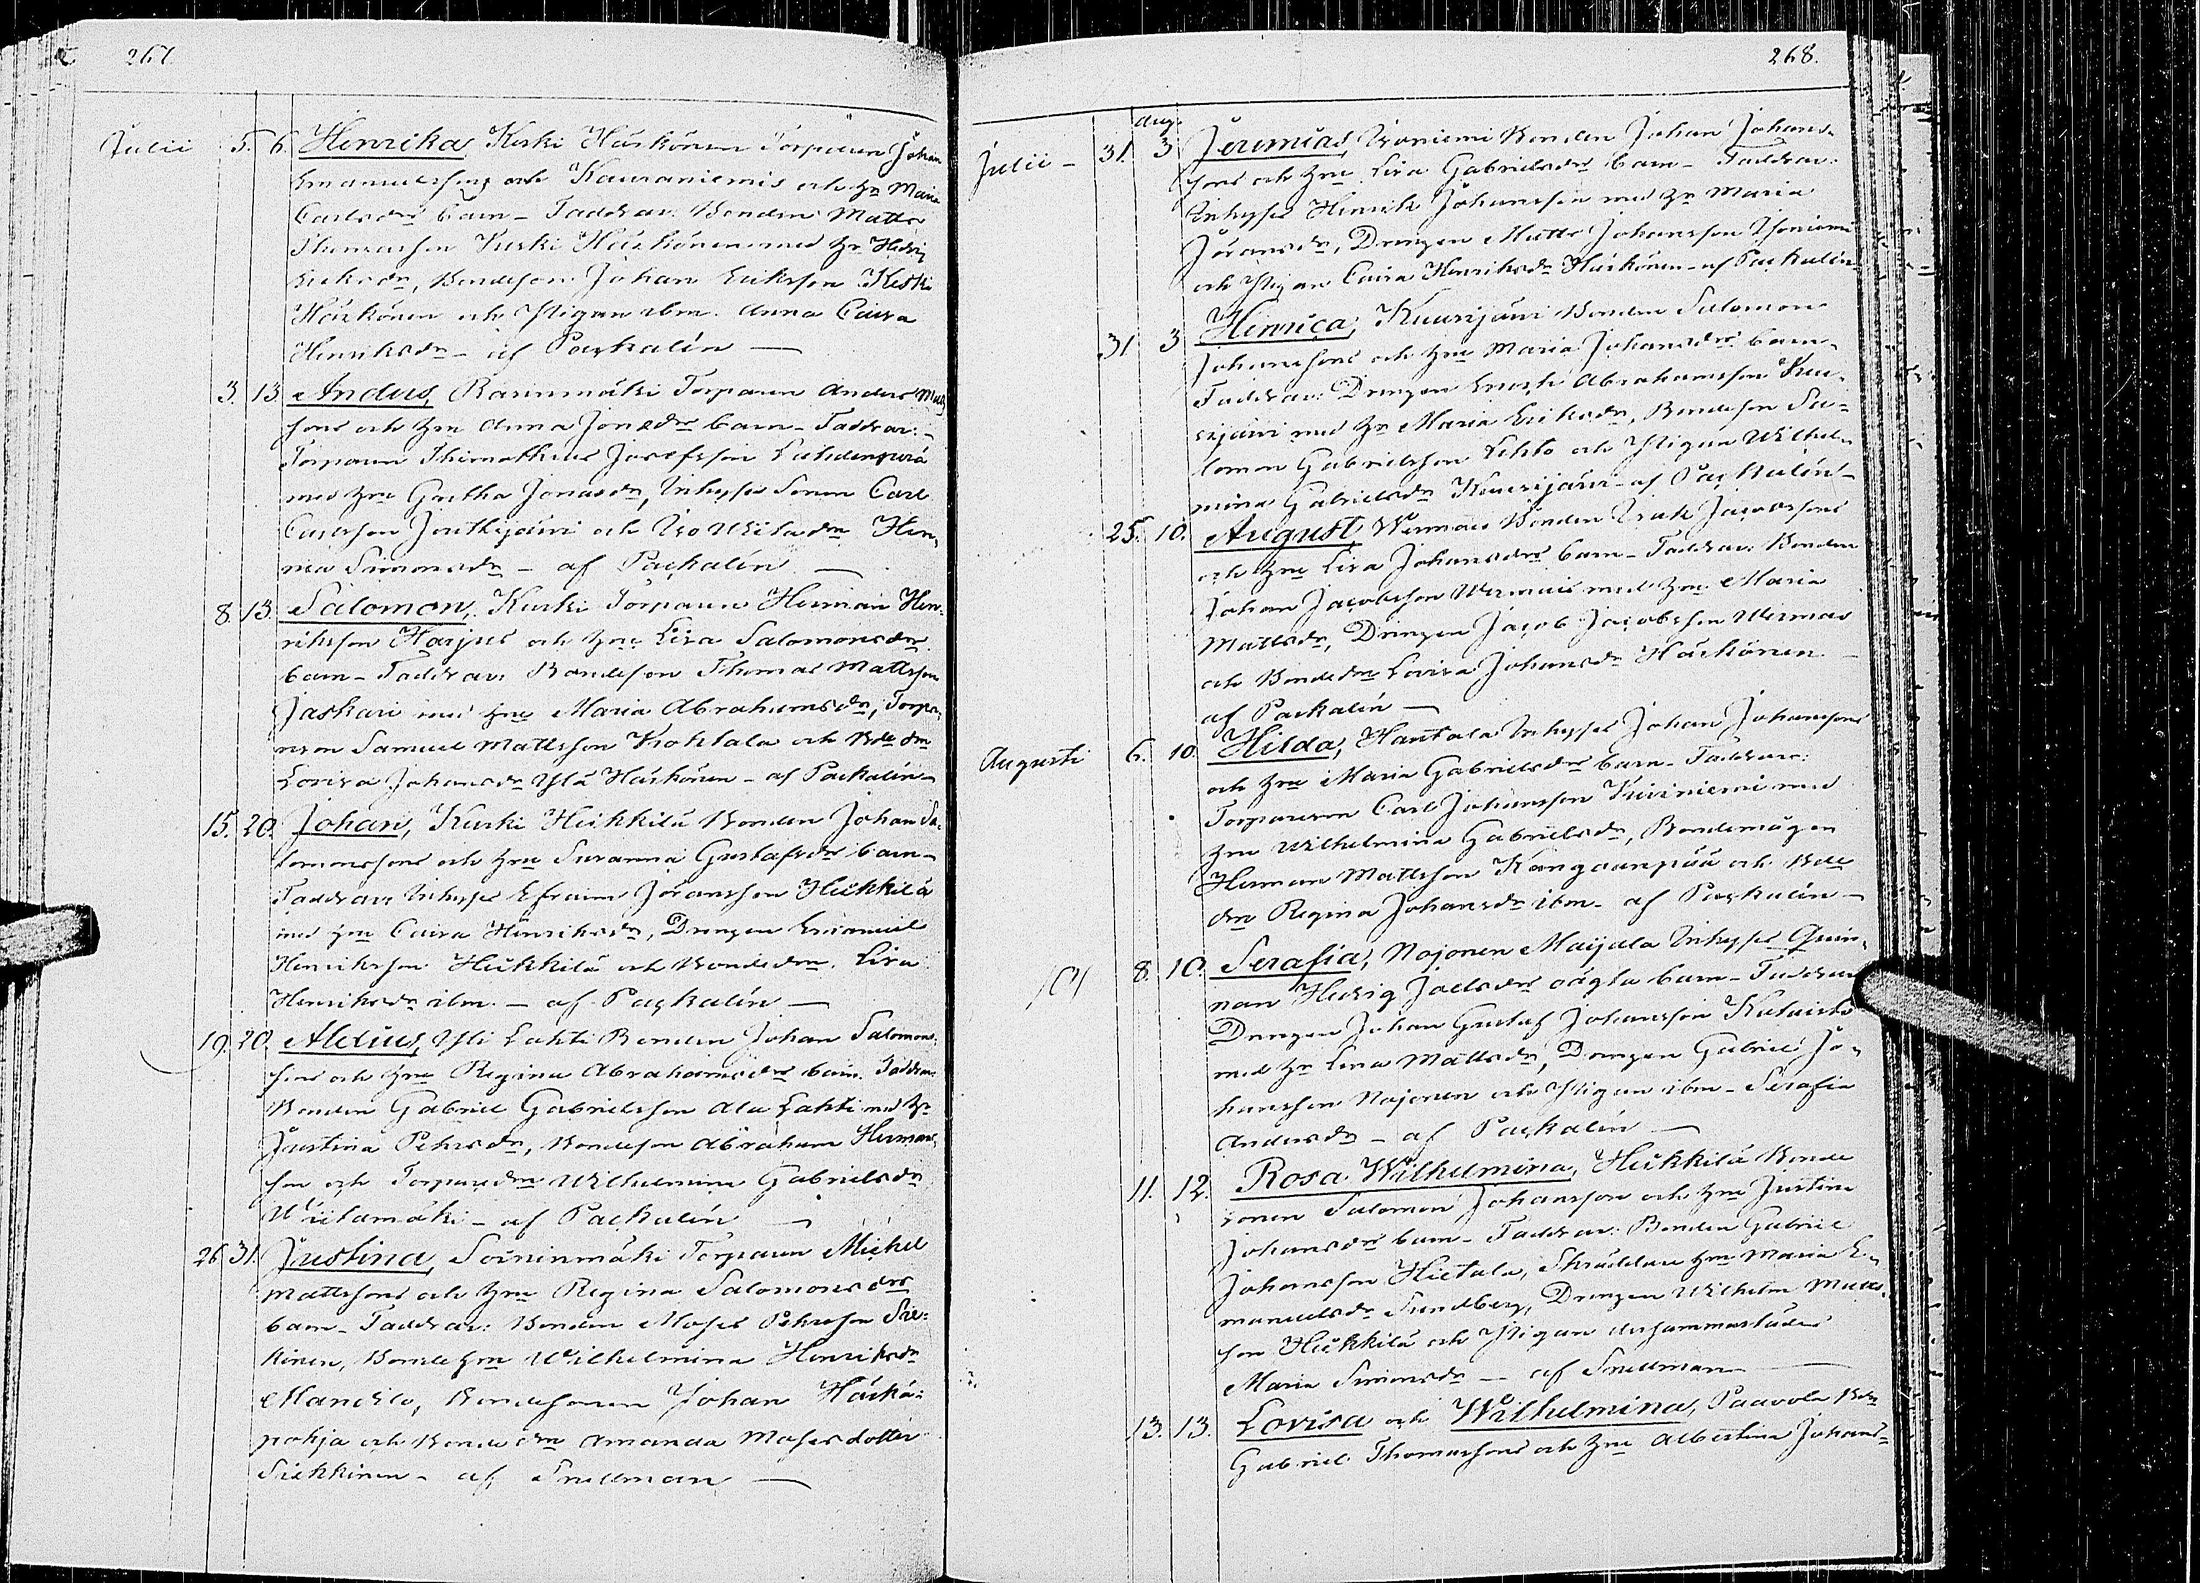 267
Julii 5. 6. Henrika, Keski Häsköinen Torparen Johan
Emanuelssons och Kauraniemis och hu Maria
Carlsdrs barn - Faddrar: Bonden Matts
Thomasson Keski Häsköinen med hu Hedvig
Eriksdr, Bondeson Johan Eriksson Keski
Häsköinen och Pigan ibm. Anna Caisa
Henriksdr - af Paçkalén
3. 13. Anders, Rannmäki Torparen Anders Matts
sons och hru Anna Jonædrs barn - Faddrar: -
Torparen Thimotheus Josefsson Lahdenperä
med hru Gretha Jonasdr, Inhyses Sonen Carl
Carlsson Joutkijärvi och Hen
na Simonsdr - af Paçkalén
8. 13. Salomon, Kurki Torparen Herman Hen-
riksson Harjus och hru Lisa Salomonsdrs
barn - Faddrar: Bondeson Thomas Mattsson
Jaskari med hru Maria Abrahamsdr, Torpa-
reson Samuel Mattsson Krohtala och Bde dn
Lovisa Johansdr Yli Häsköinen - af Paçkalén
15. 20. Johan, Kurki Heikkilä Bonden Johan Sa-
lomonssons och hru Susanna Gustafsdrs barn -
Faddrar: Inhyses Efraim Jöransson Heikkilä
med hru Caisa Henriksdr, Drengen Emanuel
Henriksson Heikkilä och Bondedrn. Lisa
Henriksdr ibm. - af Paçkalén
19. 20. Alexius, Yli Lahti Bonden Johan Salomons-
sons och hru Regina Abrahamsdrs barn. Faddrar:
Bonden Gabriel Gabrielsson Ala Lahti med hu
Justina Pehrsdr, Bondeson Abraham Hermans
son och Torparedrn Wilhelmina Gabrielsdr
Wiitamäki - af Paçkalén
26. 31. Justina, Soininmäki Torparen Michel
Mattssons och hru Regina Salomonsdrs
barn - Faddrar: Bonden Moses Pehrsson Siek-
kinen, Bondehru Wilhelmina Henriksdr
Mandelo, Bondesonen Johan Häikä-
pohja och Bondedrn Amanda Mosesdotter
Siekkinen - af Snellman
268.
Aug.
Julii - 31. 3 Jeremias, Isoniemi Bonden Johan Johans-
sons och hru Lisa Gabrielsdrs barn - Faddrar:
Inhyses Henrik Johansson med hu Maria
Jöransdr, Drengen Matts Johansson Isoniemi
och Pigan Caisa Henriksdr Häsköinen - af Paçkalén
31 3 Henrica, Kuurijärvi Bonden Salomon
Johanssons och hru Maria Johansdrs barn -
Faddrar: Drengen Enoch Abrahamsson Kuu-
rijärvi med hu Maria Eriksdr, Bondeson Sa-
lomon Gabrielsson Lehto och Pigan Wilhel-
mina Gabrielsdr Kuurijärvi - af Paçkalén -
25. 10. August, Wermas Bonden Isak Jacobssons
och hru Lisa Johansdrs barn - Faddrar: Bonden
Johan Jacobsson Wermas med hru Maria
Mattsdr, Drengen Jacob Jacobsson Wermas
och Bondedrn Lovisa Johansdr Häsköinen
af Paçkalén
Augusti 6. 10. Hilda, Hantala Inhyses Johan Johanssons
och hru Maria Gabrielsdrs barn - Faddrar:
Torparen Carl Johansson Kiviniemi med
hru Wilhelmina Gabrielsdr, Bondemågen
Herman Mattsson Kangaanpää och Bde
drn Regina Johansdr ibm - af Paçkalén -
8. 10. Serafia, Nojonen Maijala Inhyses Qvin-
nan Hedvig Joelsdrs oägta barn - Faddrar
Drengen Johan Gustaf Johansson
med hu Lena Mattsdr, Drengen Gabriel Jo-
hansson Nojonen och Pigan ibm - Serafia
Andersdr - af Paçkalén
11. 12. Rosa Wilhelmina, Heikkilä Bonde
sonen Salomon Johansson och hru Justina
Johansdrs barn - Faddrar: Bonden Gabriel
Johansson Hietala, Skräddare hru Maria E-
manuelsdr Sundberg, Drengen Wilhelm Matts-
son Heikkilä och Pigan dersammastädes
Maria Simonsdr - af Snellman
13. 13. Lovisa och Wilhelmina, Paavola Bdn
Gabriel Thomassons och hru Albertina Johans-